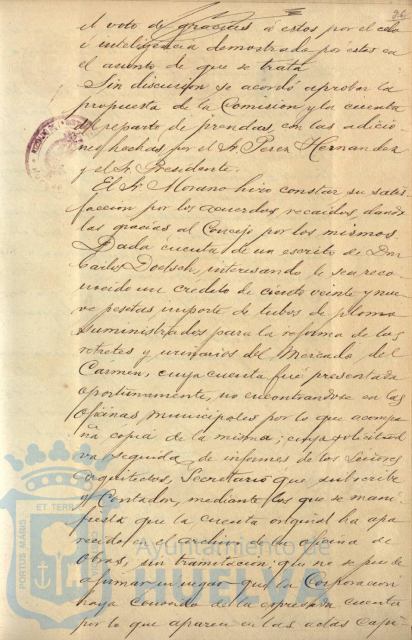 26
el voto de gracias á estos por el celo
é inteligencia demostrada por estos en
el asunto de que se trata
Sin discusion se acordó aprobar la
propuesta de la Comision y la cuenta
del reparto de prendas, con las adicio
nes hechas por el Sr. Perez Hernandez
y el Sr. Presidente.
El Sr. Morano hizo constar su satis
faccion por los acuerdos recaidos, dando
las gracias al Concejo por los mismos
Dada cuenta de un escrito de Don
Carlos Doetsch, interesando le sea reco
nocido un credito de ciento veinte y nue
ve pesetas importe de tubos de plomo
suministrados para la reforma de los
retretes y urinarios del Mercado del
Carmen, cuya cuenta fué presentada
oportunamente, no encontrandose en las
oficinas municipales por lo que acompa
ña copia de la misma; cuya solicitud
va seguida de informes de los Señores
Arquitectos, Secretario que subscribe
y Contador, mediante los que se mani
fiesta que la cuenta original ha apa
recido en el archivo de la oficina de
obras, sin tramitacion; que no se puede
afirmar ni negar que la Corporacion
haya conocido de la expresada cuenta
por lo que aparece en las actas Capi-
PORTUS MARIS
ET TERRAE
Ayuntamiento de
HUELVA